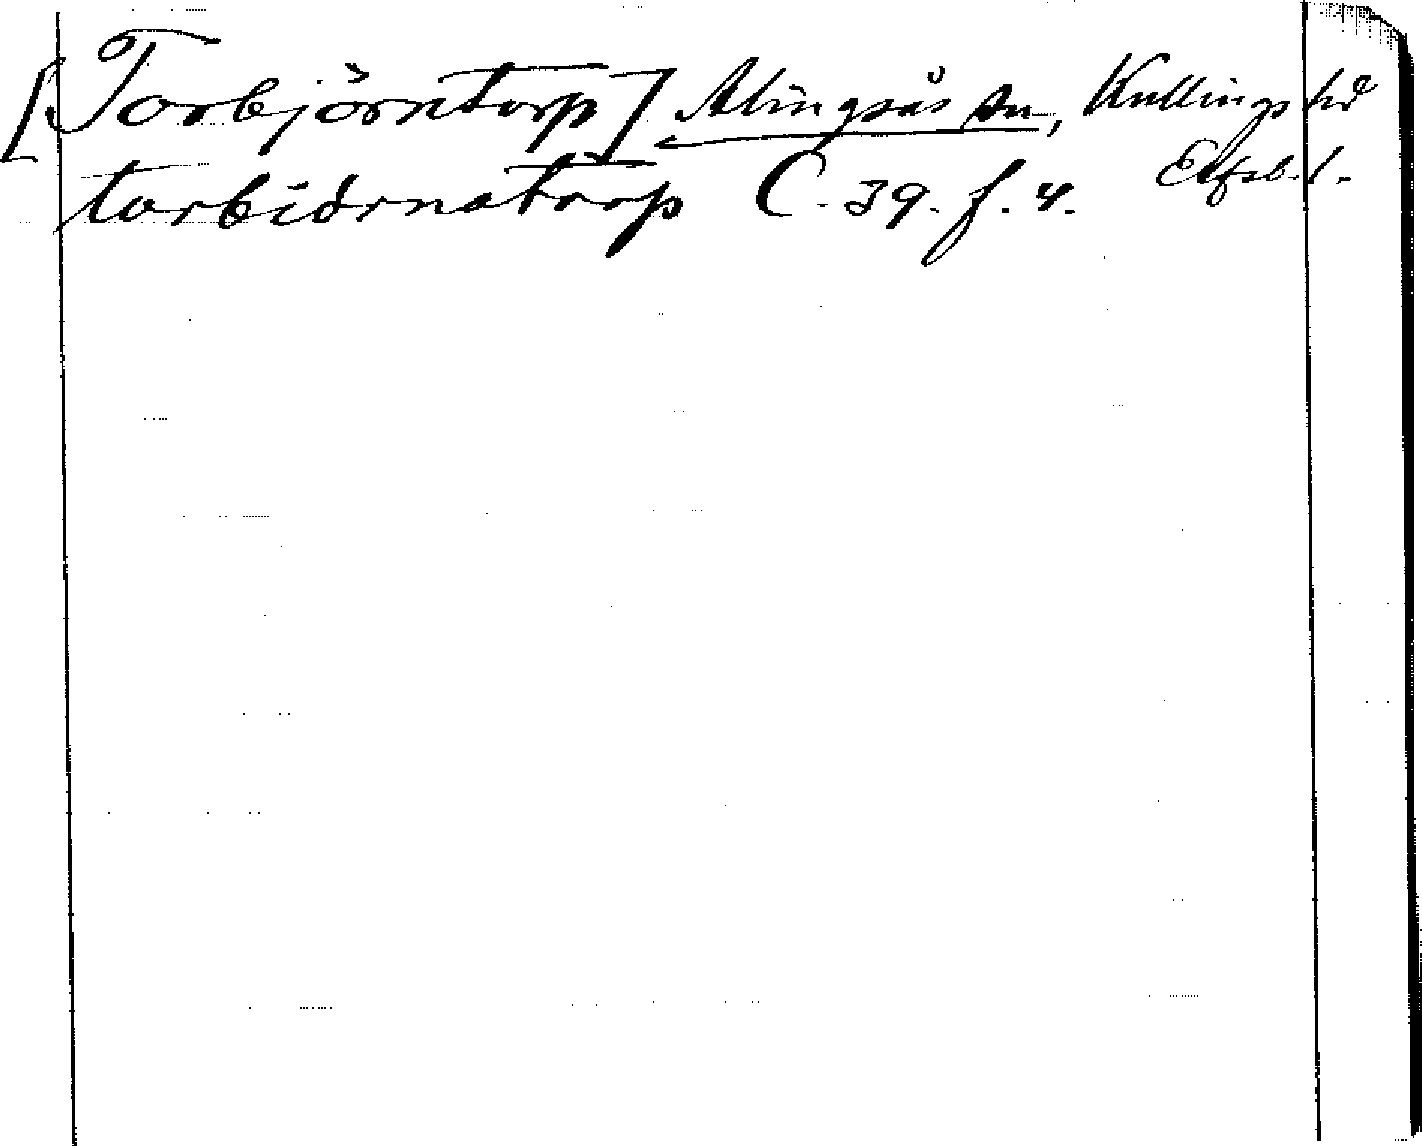 [Torbjörntorp] Alingsås sn, Kullings hd
Elfsb. l.
torbiornatorp C. 39. f. 4.